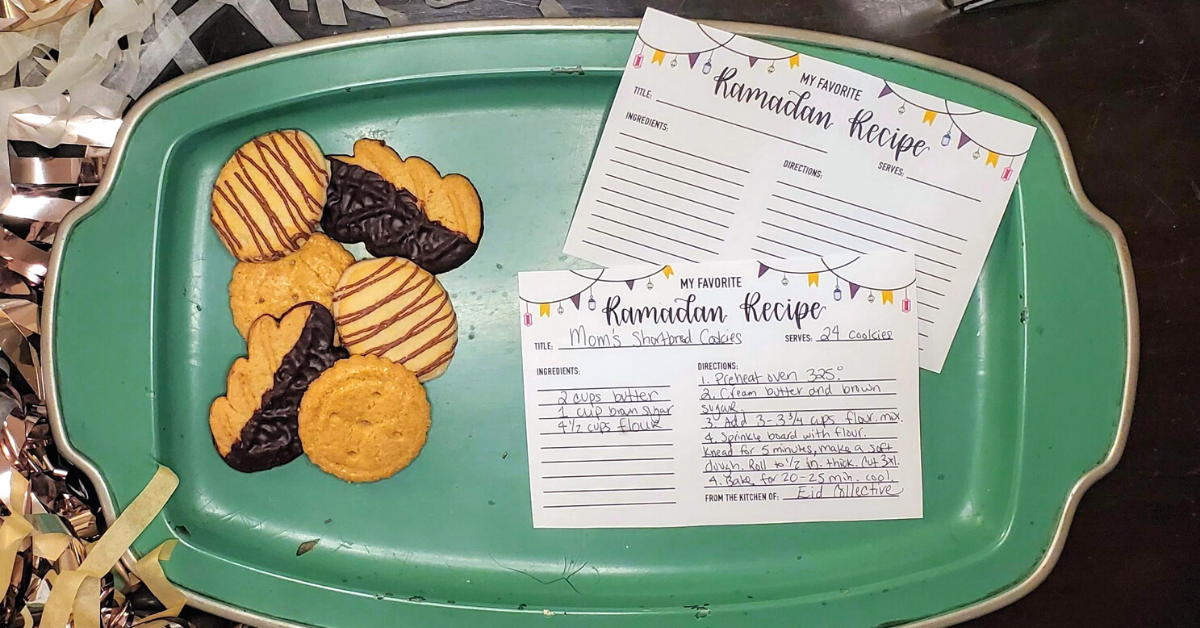 MY FAVORITE
Ramadan Recipe
TITLE:
SERVES:
INGREDIENTS:
DIRECTIONS:
MY FAVORITE
Ramadan Recipe
TITLE: Mom's Shortbread Cookies SERVES: 24 cookies
INGREDIENTS:
2 cups butter
1 cup brown sugar
4 1/2 cups flour
DIRECTIONS:
1. Preheat oven 325°.
2. Cream butter and brown
sugar.
3. Add 3-3 3/4 cups flour. mix.
4. Sprinkle board with flour.
Knead for 5 minutes, make a soft
dough. Roll to 1/2 in. thick. Cut 3x1.
4. Bake for 20-25 min. cool.
FROM THE KITCHEN OF: Eid Collective